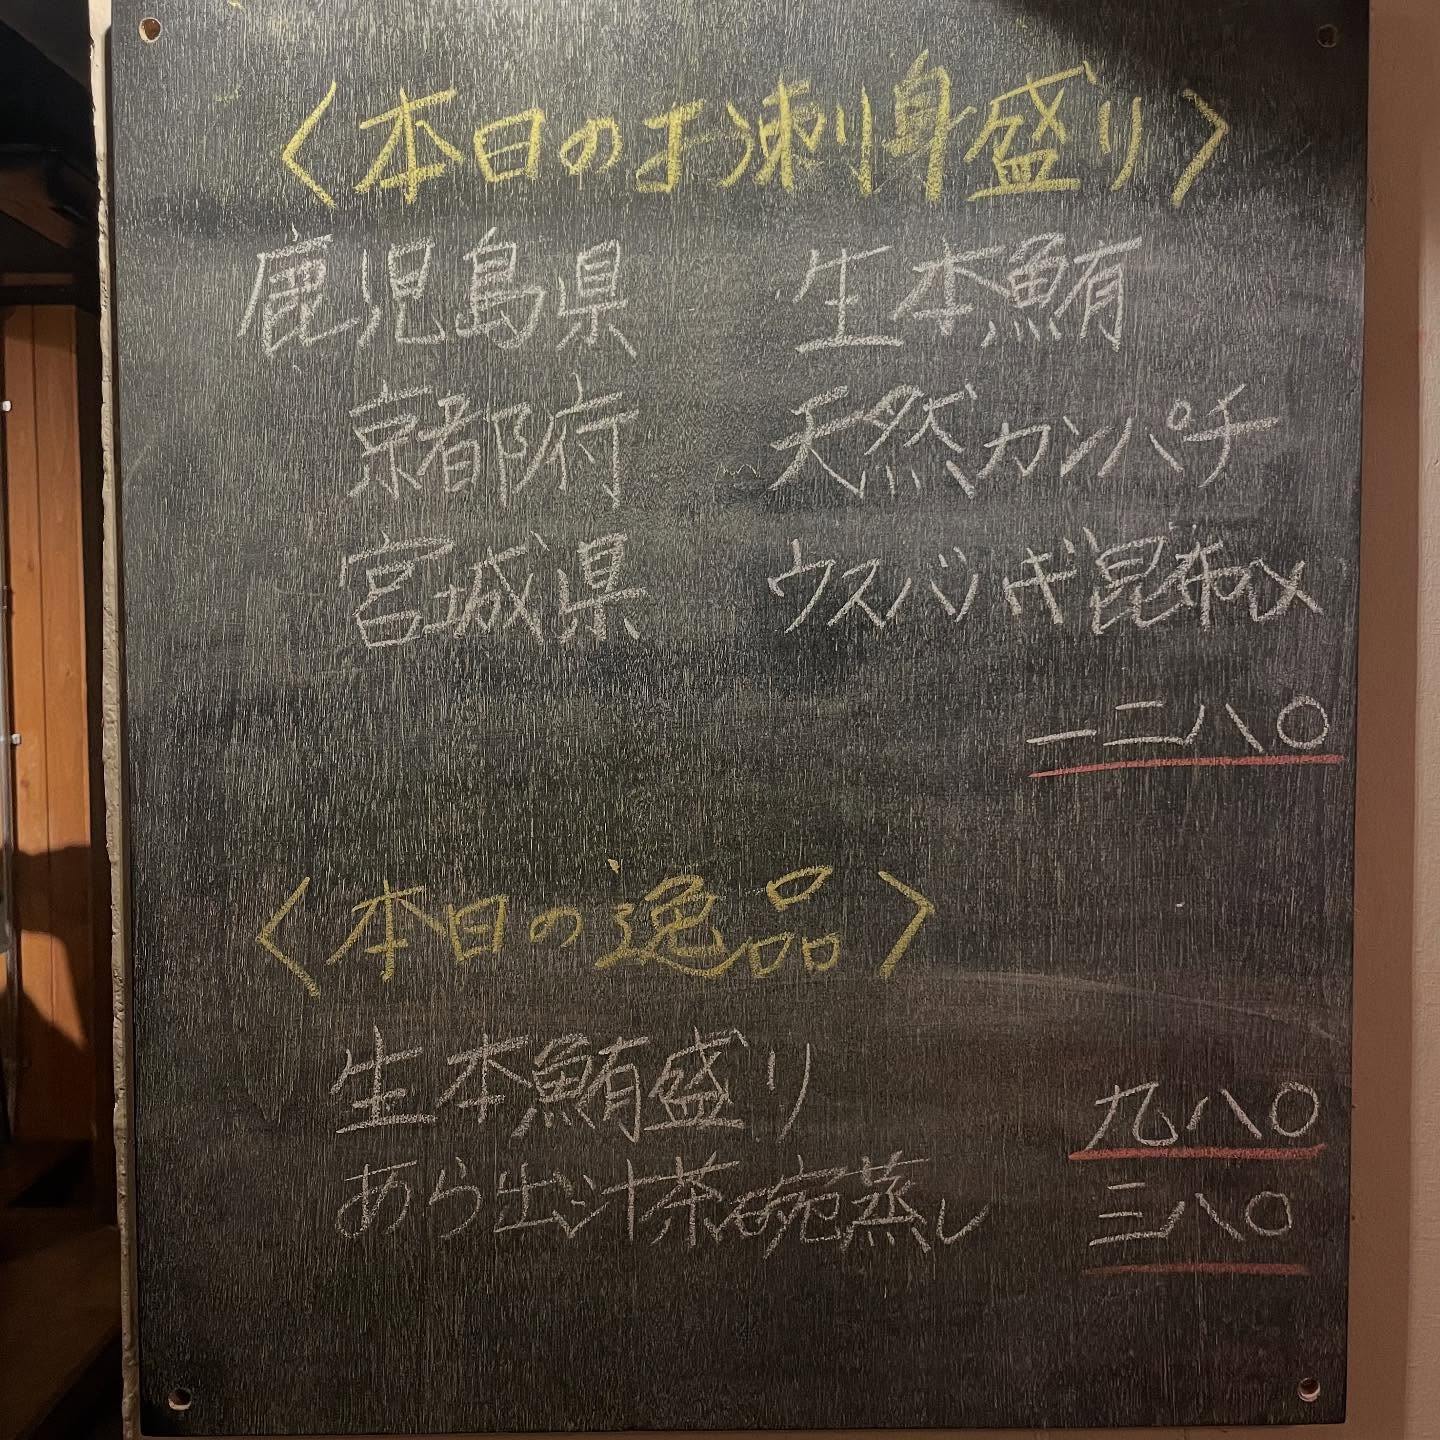 〈本日のお刺身盛り〉
鹿児島県 生本鮪
京都府 天然カンパチ
宮城県 ウスバハギ昆布〆
一二八〇
〈本日の逸品〉
生本鮪盛り 九八〇
あら出汁茶碗蒸し 三八〇